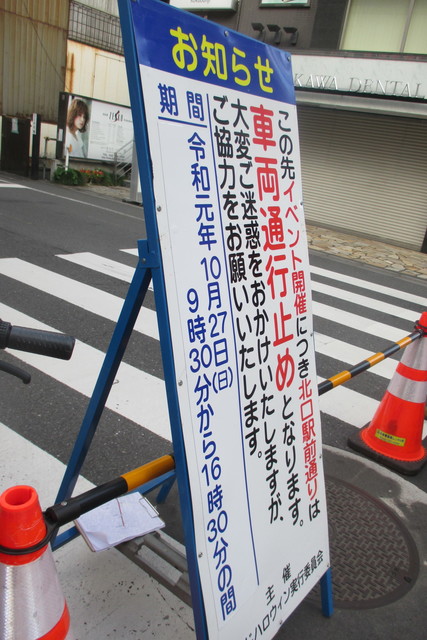 お知らせ
この先イベント開催につき北口駅前通りは
車両通行止めとなります。
大変ご迷惑をおかけいたしますが、
ご協力をお願いいたします。
期間 令和元年10月27日(日)
9時30分から16時30分の間
主催
ハロウィン実行委員会
KAWA DENTAL